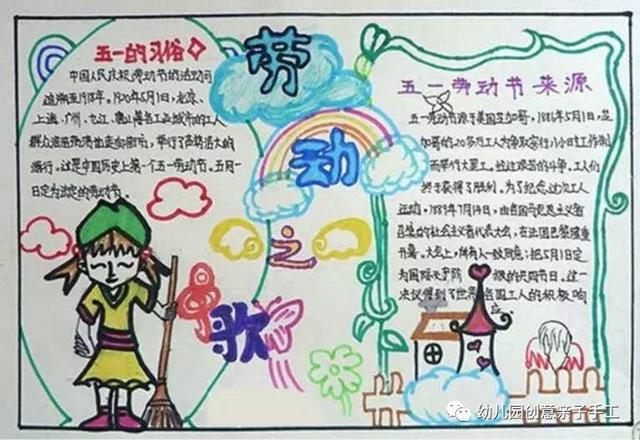 五一的习俗
中国人民庆祝劳动节的活动可
追溯至1918年。1920年5月1日,北京、
上海、广州、九江、唐山等各工业城市的工人
群众浩浩荡荡地走向街市,举行了声势浩大的
游行。这是中国历史上第一个五一劳动节。五月一
日定为法定的劳动节。
劳
动
之
歌
五一劳动节来源
五一劳动节源于美国芝加哥,1886年5月1日,芝
加哥的20多万工人为争取实行八小时工作制
而举行大罢工。经过艰苦的斗争,工人们
终于获得了胜利。为了纪念这次工人
运动,1889年7月14日,由各国马克思主义者
召集的社会主义者代表大会,在法国巴黎隆重
开幕。大会上,所有人一致同意:把5月1日定
为国际无产阶级的共同节日。这一
决议得到了世界各国工人的积极响
应。
幼儿园创意亲子手工